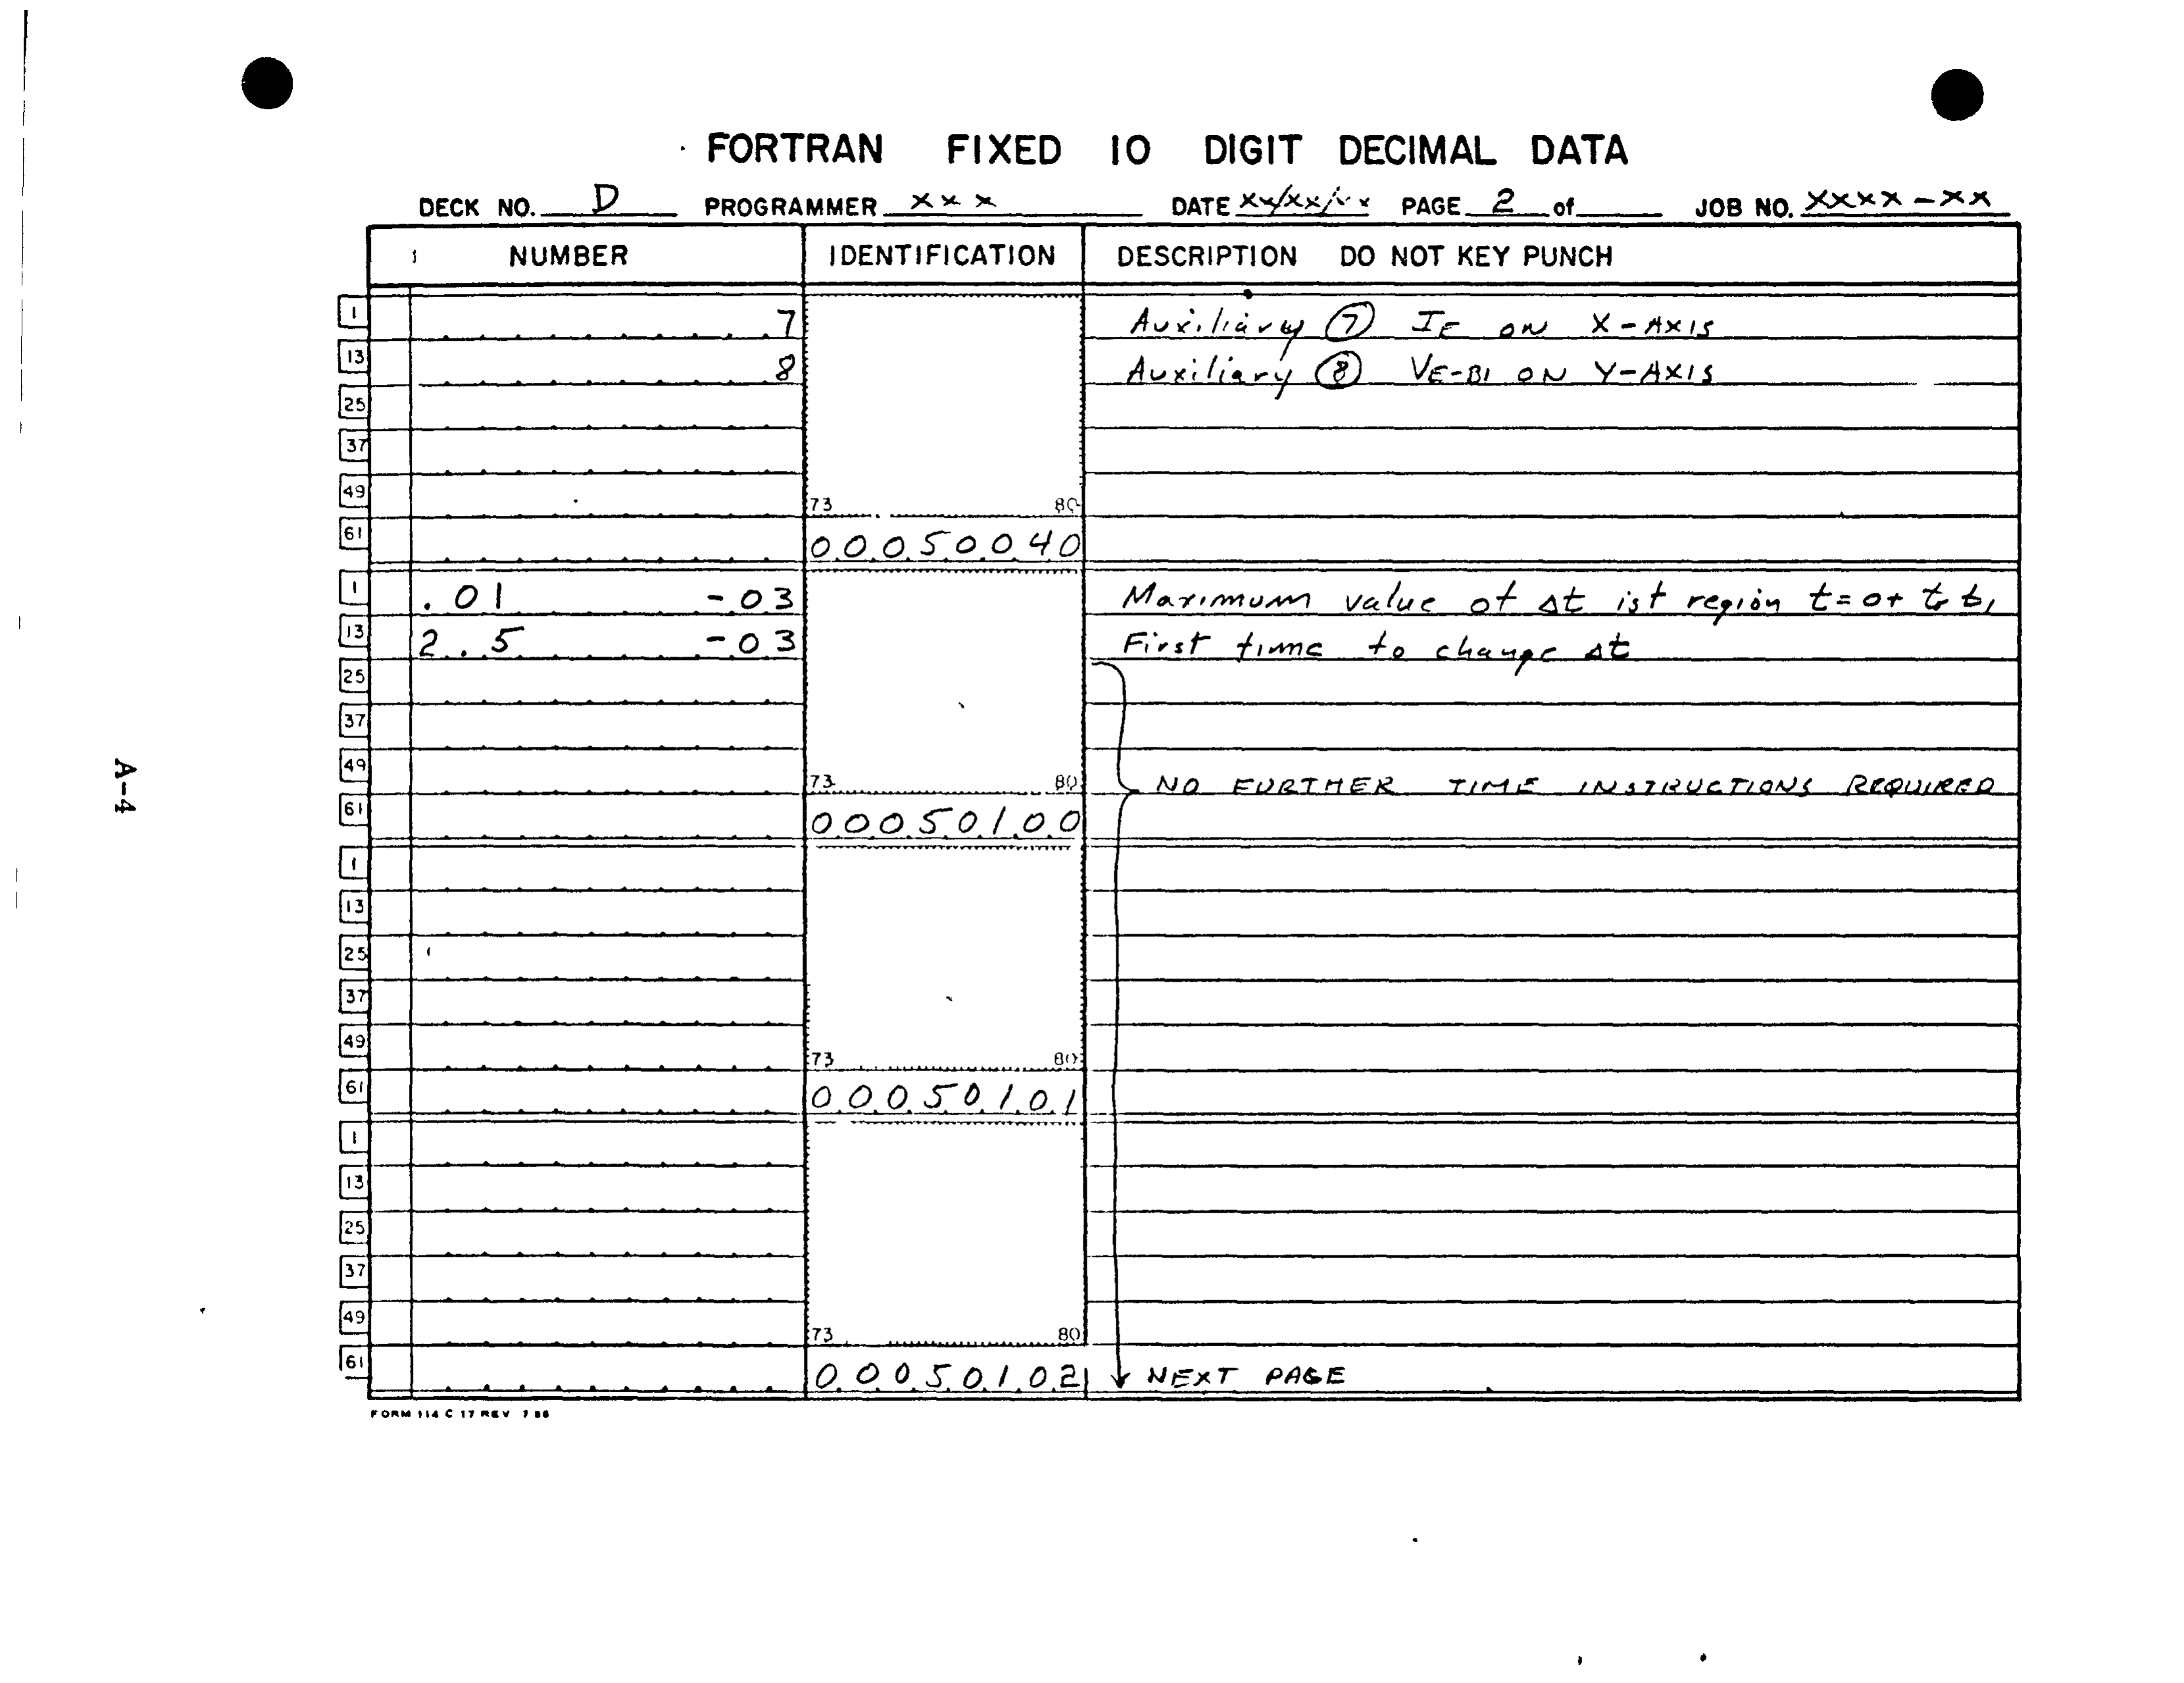 FORTRAN FIXED 10 DIGIT DECIMAL DATA
DECK NO. D PROGRAMMER XXX DATE XX/XX/XX PAGE 2 of JOB NO. XXXX-XX
1 NUMBER IDENTIFICATION DESCRIPTION DO NOT KEY PUNCH
1 7 Auxiliary 7 IE ON X-AXIS
13 8 Auxiliary 8 VE-B1 ON Y-AXIS
25
37
49 73 80
61 00050040
1 .01 -03 Maximum value of Δt 1st region t=0+ to t1
13 2.5 -03 First time to change Δt
25
37
49 73 80 NO FURTHER TIME INSTRUCTIONS REQUIRED
61 00050100
1
13
25
37
49 73 80
61 00050101
1
13
25
37
49 73 80
61 00050102 NEXT PAGE
FORM 114 C 17 REV
A-4